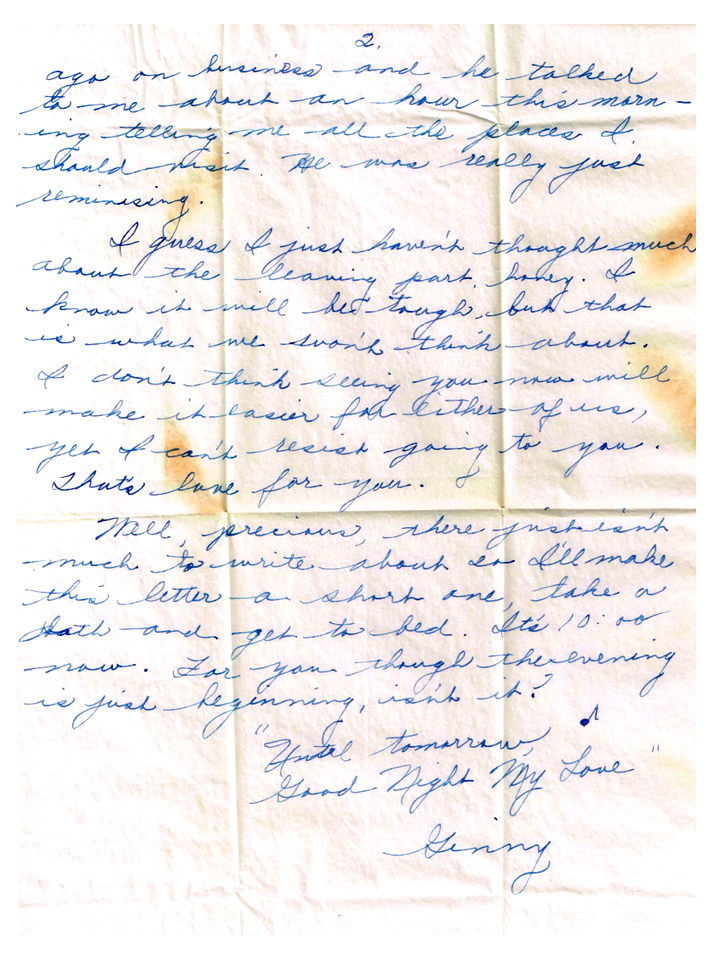 2.
ago on business and he talked
to me about an hour this morn-
ing telling me all the places I
should visit. He was really just
reminising.
I guess I just haven't thought much
about the leaving part, honey. I
know it will be tough, but that
is what we won't think about.
I don't think seeing you now will
make it easier for either of us,
yet I can't resist going to you.
That's love for you.
Well, precious, there just isn't
much to write about so I'll make
this letter a short one, take a
bath and get to bed. It's 10:00
now. For you though the evening
is just beginning, isn't it?
"Until tomorrow,
Good Night My Love"
Ginny